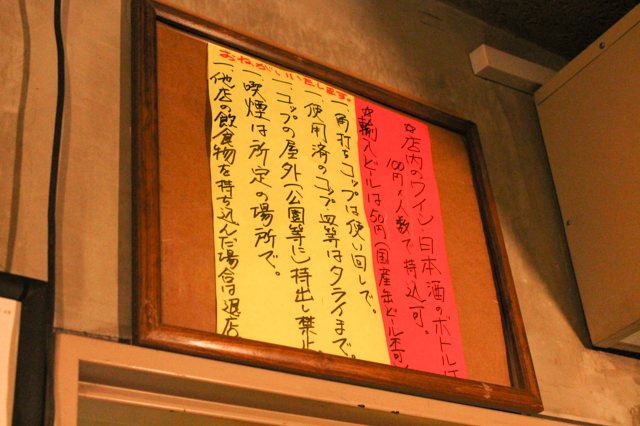 ☆店内のワイン、日本酒のボトルは
100円×人数で持込可。
☆輸入ビールは50円(国産缶ビール不可)
おねがいいたします。
一、角打ちコップは使い回しで。
使用済のコップ・皿等はタライまで。
一、コップの屋外(公園等に)持出し禁止
一、喫煙は所定の場所で。
一、他店の飲食物を持ち込んだ場合は退店